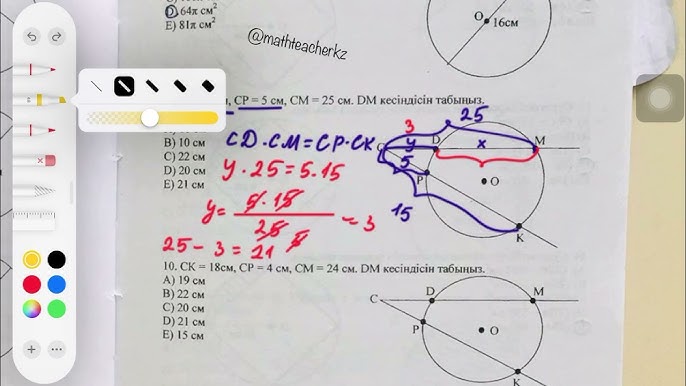 D) 64π см²
E) 81π см²
@mathteacherkz
O
16см
CP = 5 см, CM = 25 см. DM кесіндісін табыңыз.
B) 10 см
C) 22 см
D) 20 см
E) 21 см
CD · CM = CP · CK
y · 25 = 5 · 15
y = 5 · 15
25 5
= 3
25 - 3 = 21
3
25
D
M
y
x
5
P
O
15
K
10. CK = 18см, CP = 4 см, CM = 24 см. DM кесіндісін табыңыз.
A) 19 см
B) 22 см
C) 20 см
D) 21 см
E) 15 см
C
D
M
P
O
K